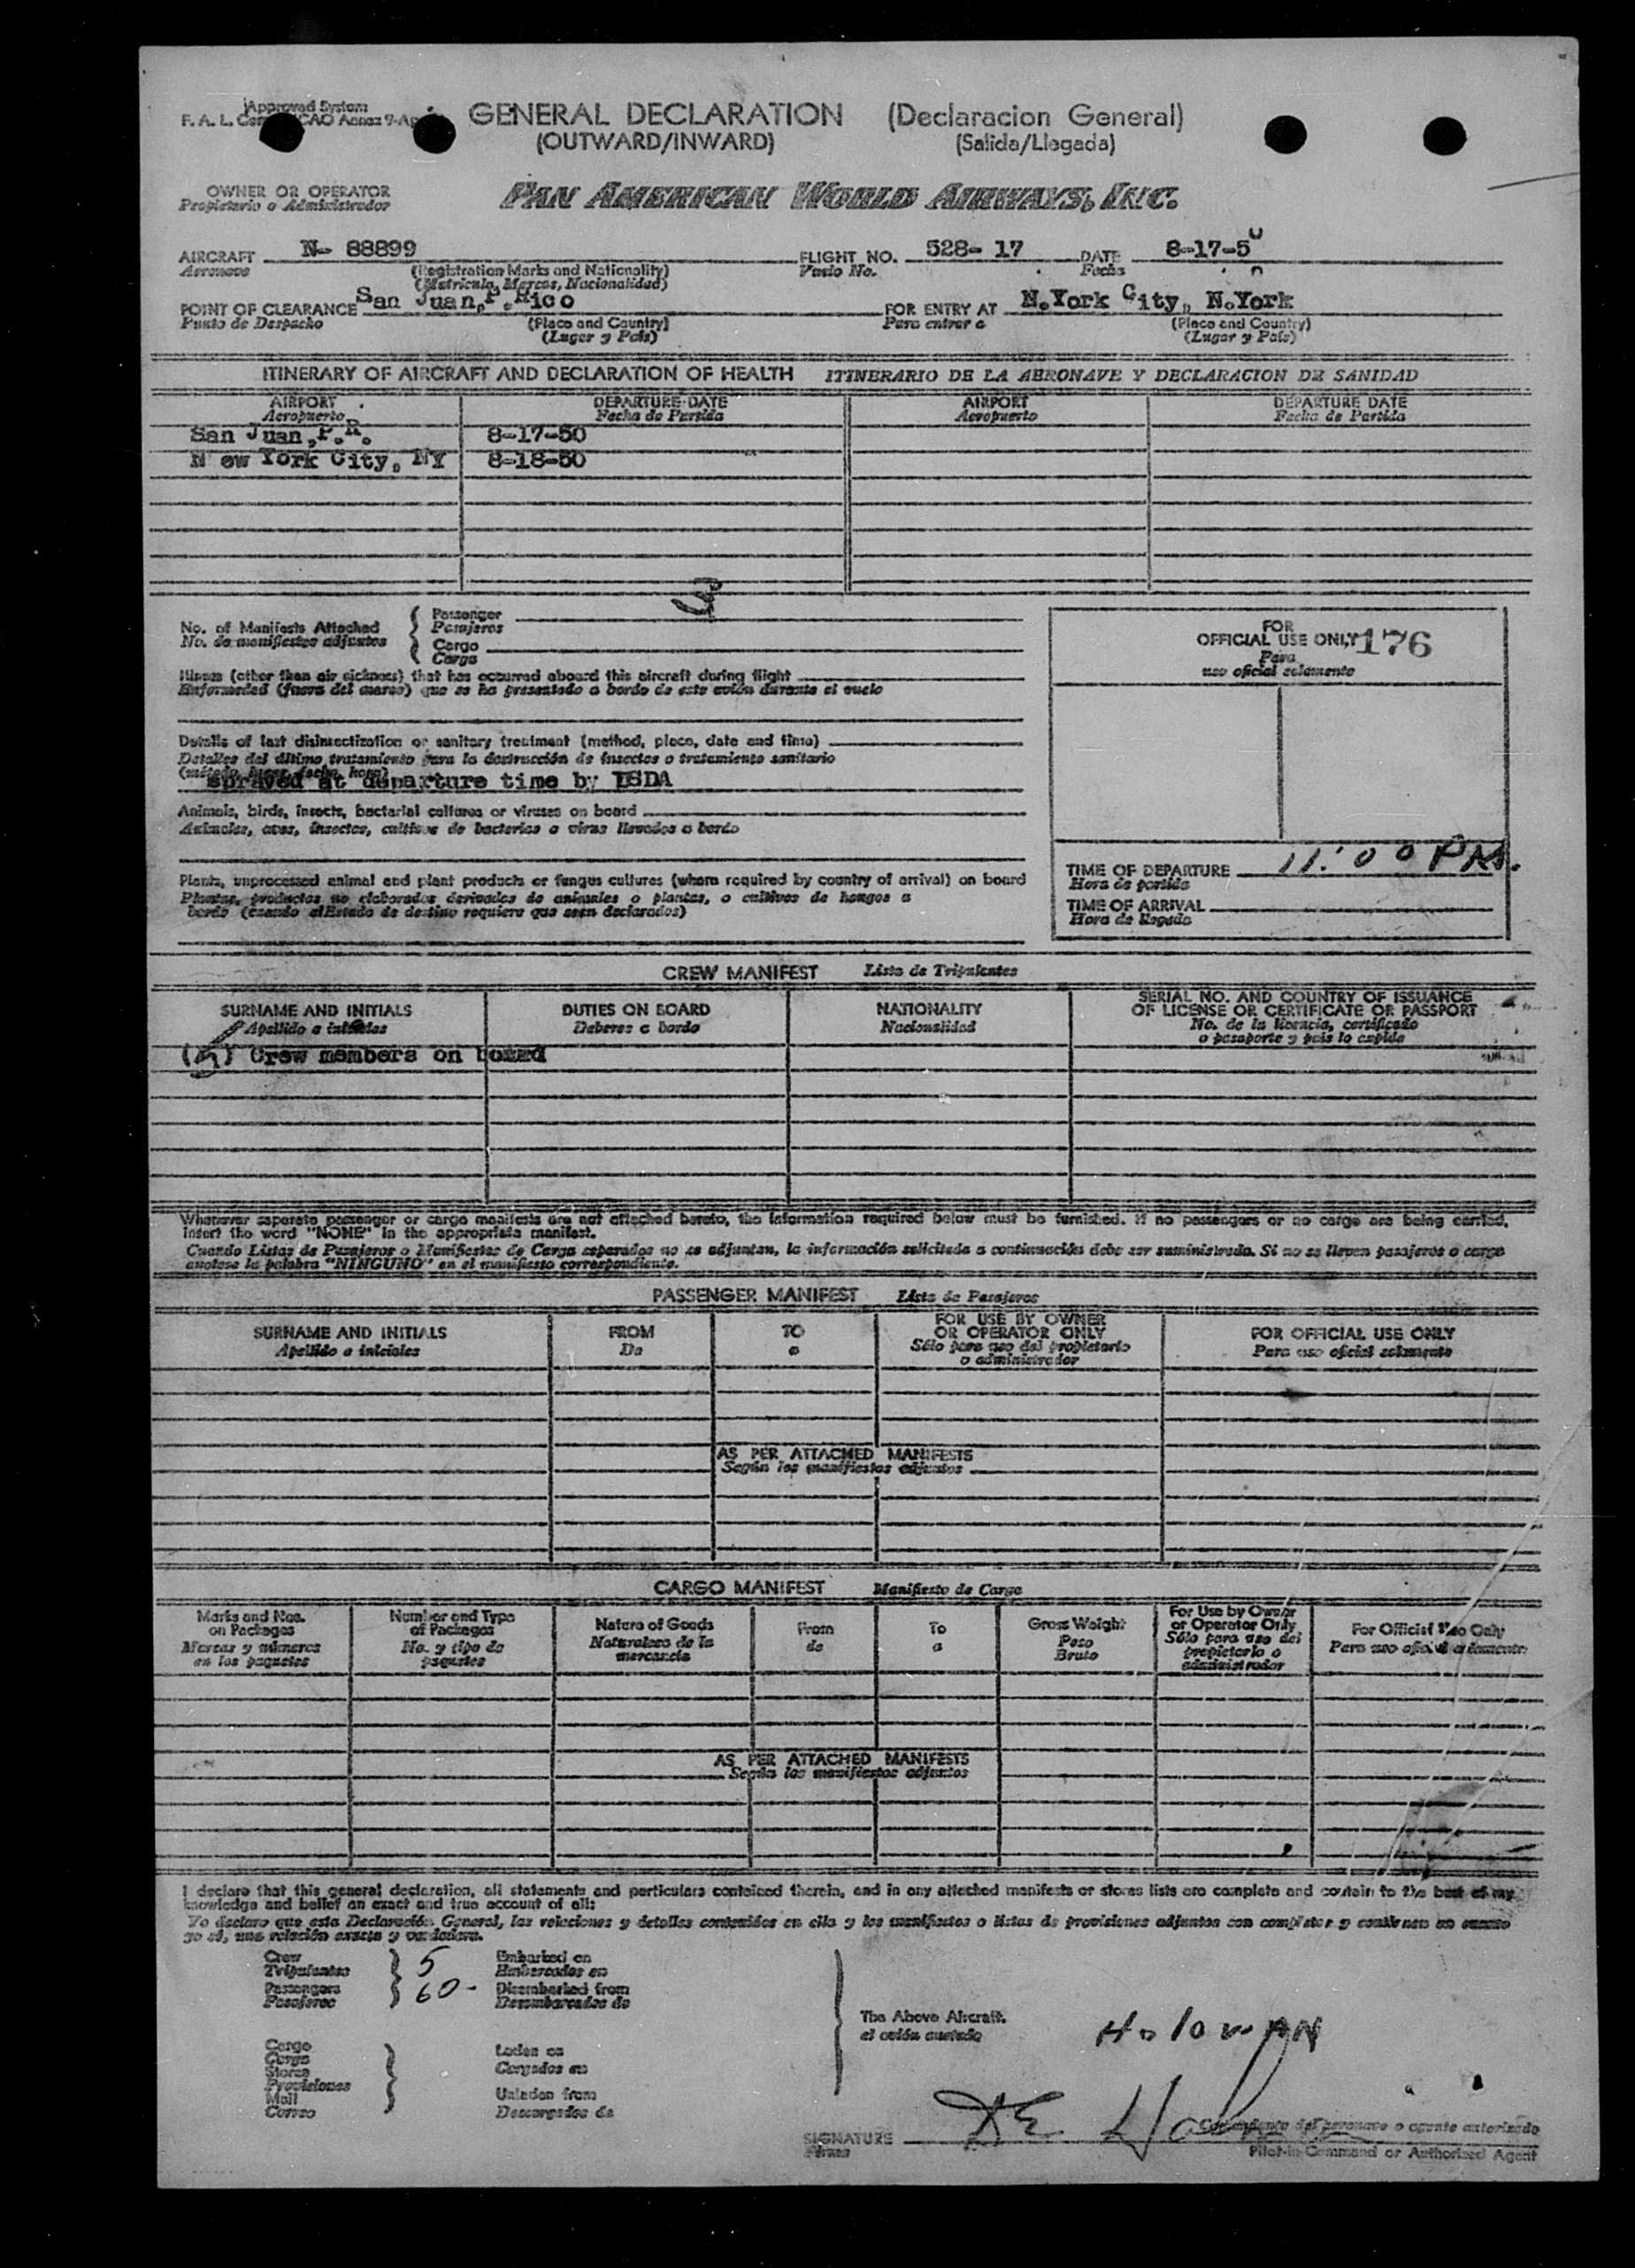 Approved System
GENERAL DECLARATION (Declaracion General)
F. A. L. ICAO Annex 9-Ap
(OUTWARD/INWARD) (Salida/Llegada)
OWNER OR OPERATOR PAN AMERICAN WORLD AIRWAYS, INC.
Propietario o Administrador
AIRCRAFT N- 88899 FLIGHT NO. 528- 17 DATE 8-17-50
Aeronave (Registration Marks and Nationality) Vuelo No. Fecha
(Matricula, Marcas, Nacionalidad)
POINT OF CLEARANCE San Juan,P.Rico FOR ENTRY AT N.York City, N.York
Punto de Despacho (Place and Country) Para entrar a (Place and Country)
(Lugar y País) (Lugar y País)
ITINERARY OF AIRCRAFT AND DECLARATION OF HEALTH ITINERARIO DE LA AERONAVE Y DECLARACION DE SANIDAD
AIRPORT DEPARTURE DATE AIRPORT DEPARTURE DATE
Aeropuerto Fecha de Partida Aeropuerto Fecha de Partida
San Juan,P.R. 8-17-50
N ew York City, NY 8-18-50
No. of Manifests Attached Passenger
No. de manifiestos adjuntos Pasajeros
Cargo
Carga
FOR
OFFICIAL USE ONLY 176
Para
uso oficial solamente
Illness (other than air sickness) that has occurred aboard this aircraft during flight
Enfermedad (fuera del mareo) que se ha presentado a bordo de este avión durante el vuelo
Details of last disinsectization or sanitary treatment (method, place, date and time)
Detalles del último tratamiento para la destrucción de insectos o tratamiento sanitario
(método, lugar, fecha, hora)
sprayed at departure time by
Animals, birds, insects, bacterial cultures or viruses on board
Animales, aves, insectos, cultivos de bacterias o virus llevados a bordo
Plants, unprocessed animal and plant products or fungus cultures (where required by country of arrival) on board
Plantas, productos no elaborados derivados de animales o plantas, o cultivos de hongos a
bordo (cuando el Estado de destino requiere que sean declarados)
TIME OF DEPARTURE 11:00 PM.
Hora de partida
TIME OF ARRIVAL
Hora de llegada
CREW MANIFEST Lista de Tripulantes
SURNAME AND INITIALS DUTIES ON BOARD NATIONALITY SERIAL NO. AND COUNTRY OF ISSUANCE
OF LICENSE OR CERTIFICATE OR PASSPORT
Apellido e iniciales Deberes a bordo Nacionalidad No. de la licencia, certificado
o pasaporte y país lo expide
(5) Crew members on board
Whenever separate passenger or cargo manifests are not attached hereto, the information required below must be furnished. If no passengers or no cargo are being carried,
insert the word "NONE" in the appropriate manifest.
Cuando Listas de Pasajeros o Manifiestos de Carga separados no se adjuntan, la información solicitada a continuación debe ser suministrada. Si no se llevan pasajeros o carga
anotese la palabra "NINGUNO" en el manifiesto correspondiente.
PASSENGER MANIFEST Lista de Pasajeros
SURNAME AND INITIALS FROM TO FOR USE BY OWNER
OR OPERATOR ONLY FOR OFFICIAL USE ONLY
Apellido e iniciales De a Sólo para uso del propietario
o administrador Para uso oficial solamente
AS PER ATTACHED MANIFESTS
Según los manifiestos adjuntos
CARGO MANIFEST Manifiesto de Carga
Marks and Nos.
on Packages
Marcas y números
en los paquetes
Number and Type
of Packages
No. y tipo de
paquetes
Nature of Goods
Naturaleza de la
mercancía
From
de
To
a
Gross Weight
Peso
Bruto
For Use by Owner
or Operator Only
Sólo para uso del
propietario o
administrador
For Official Use Only
Para uso oficial solamente
AS PER ATTACHED MANIFESTS
Según los manifiestos adjuntos
I declare that this general declaration, all statements and particulars contained therein, and in any attached manifests or stores lists are complete and contain to the best of my
knowledge and belief an exact and true account of all:
Yo declaro que esta Declaración General, las relaciones y detalles contenidos en ella y los manifiestos o listas de provisiones adjuntos son completos y contienen en cuanto
yo sé, una relación exacta y verdadera.
Crew 5 Embarked on
Tripulantes Embarcados en
Passengers 60 - Disembarked from
Pasajeros Desembarcados de
The Above Aircraft.
el avión anotado
Holovan
Cargo
Carga
Stores
Provisiones
Mail
Correo
Laden on
Cargados en
Unladen from
Descargados de
SIGNATURE
Firma
Comandante del aeronave o agente autorizado
Pilot-in Command or Authorized Agent